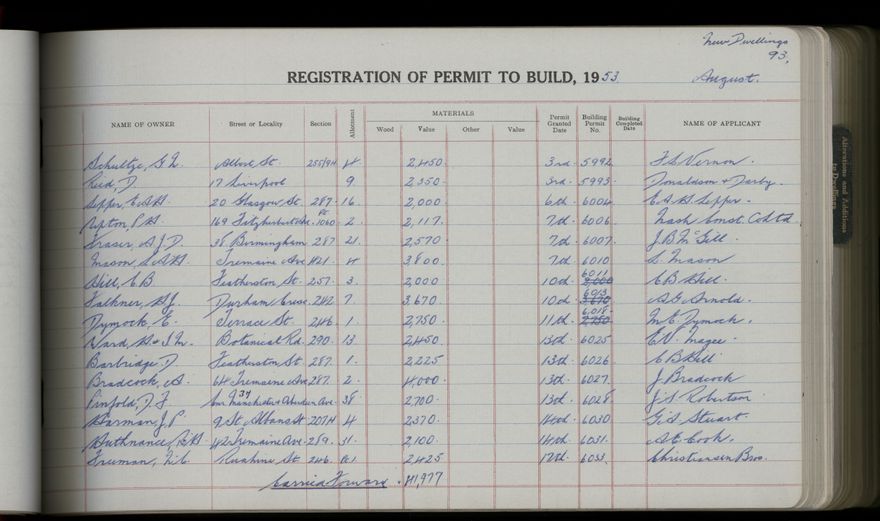 New Dwellings
93.
REGISTRATION OF PERMIT TO BUILD, 1953
August.
NAME OF OWNER Street or Locality Section Allotment MATERIALS Wood Value Other Value Permit Granted Date Building Permit No. Building Completed Date NAME OF APPLICANT
Schultze, G. Albert St. 255/94 4 2,450 3rd 5992 F.S. Vernon.
Reid, D 17 Liverpool 9 2,350 3rd 5993 Donaldson & Darby.
Sepper, E.A.H. 20 Glasgow St. 287 16 2,000 6th 6004 E.A.H. Sepper.
Ripton, P.H. 169 Fitzherbert Ave. Pt 1060 2 2,117 7th 6006 Nash Const. Co Ltd
Fraser, A.J.D. 38 Birmingham 287 21 2,570 7th 6007 J.B. McGill.
Mason, S. Tremaine Ave 421 4 3,800 7th 6010 S. Mason
Hill, C B Featherston St. 257 3 2,000 10th 6011 C B Hill.
Falkner, H.J. Durham Cresc. 242 7 3,670 10th 6013 A.G. Arnold.
Dymock, E. Terrace St. 246 1 2,750 11th 6018 M E Dymock.
Ward, H. & I.M. Botanical Rd. 290 13 2,450 13th 6025 E.V. Magee.
Barbridge, D Featherston St. 287 1 2,225 13th 6026 C B Hill
Bradcock, A. 64 Tremaine Ave 287 2 4,000 13th 6027 J Bradcock
Pinfold, D.J. Cnr Manchester & Aberdeen Ave. 37 38 2,700 13th 6028 J.S. Robertson
Harman, J P. 9 St Albans St 207/4 4 2370 14th 6030 G.S. Stuart.
Huthnance, 42 Tremaine Ave. 289 31 2,100 14th 6031 A E Cook.
Freeman, N.C. Ruahine St. 246 2425 17th 6033 Christiansen Bros.
Carried Forward 41,977
Alterations and Additions to Dwellings